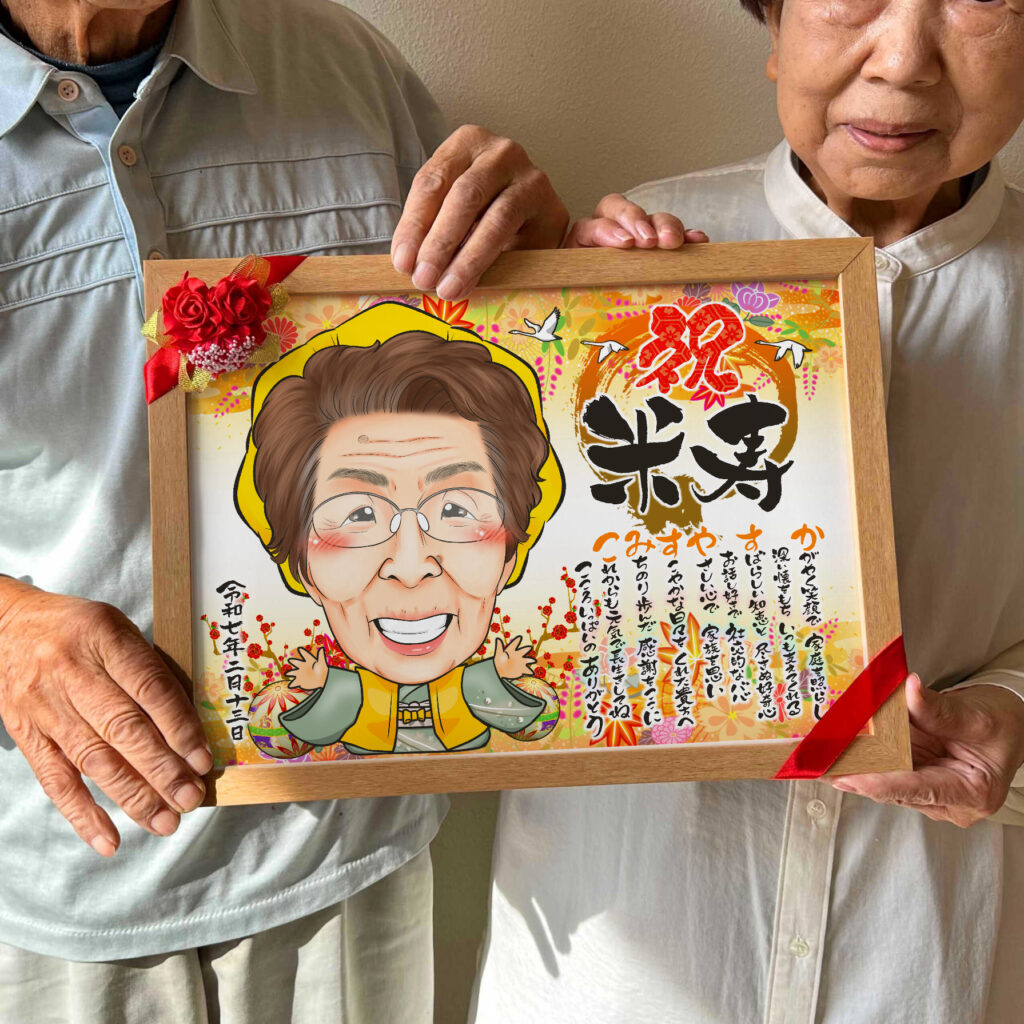 祝
米寿
かがやく笑顔で 家庭を照らし
深い懐をもち いつも支えてくれる
すばらしい知恵と 尽きぬ好奇心
お話し好きで 社交的な心
やさしい心で 家族を思い
すこやかな日々を くれた貴女へ
みちのり歩んだ 感謝をここに
これからも元気で長生きしてね
こころいっぱいの ありがとう
令和七年二月十三日